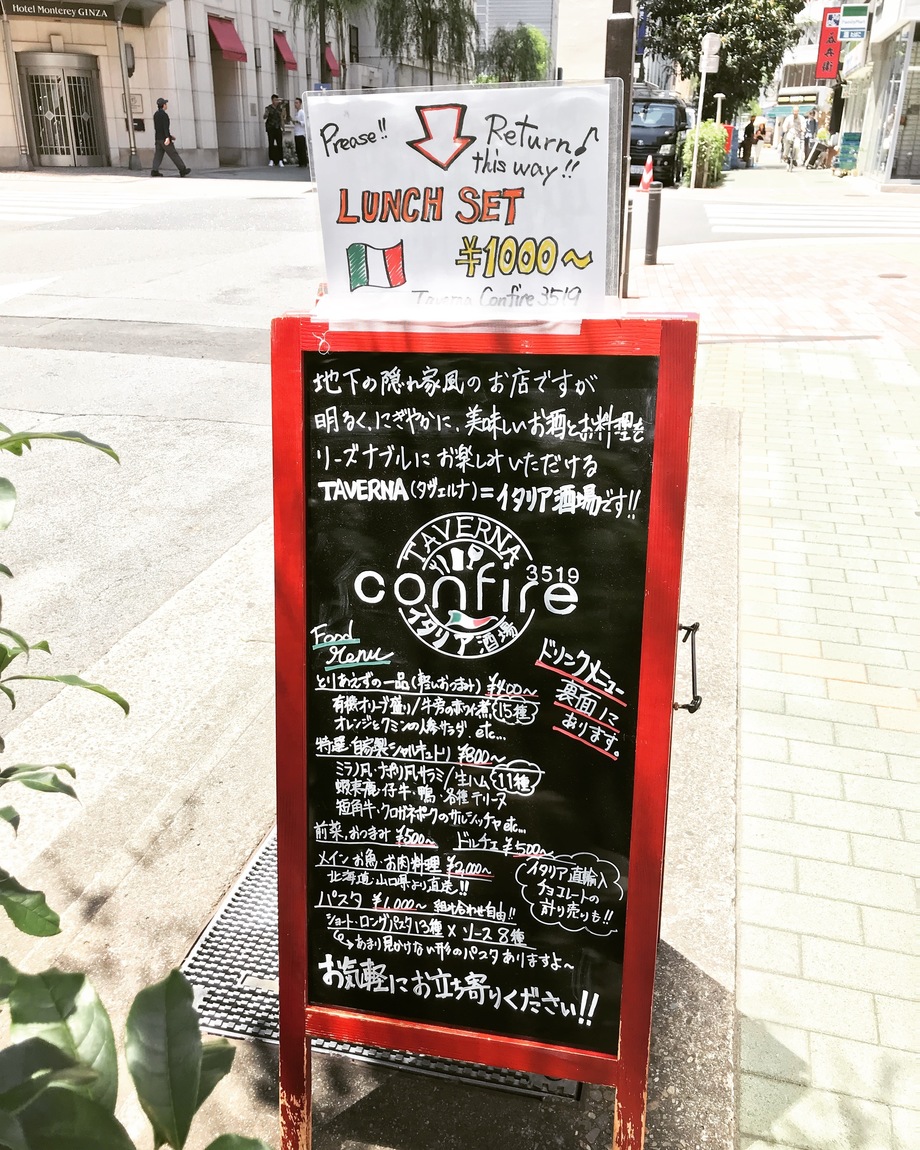 Hotel Monterey GINZA
FamilyMart
Prease!! Return♪
this way!!
LUNCH SET
¥1000～
Taverna Confire 3519
地下の隠れ家風のお店ですが
明るく、にぎやかに、美味しいお酒とお料理を
リーズナブルにお楽しみいただける
TAVERNA(タヴェルナ)=イタリア酒場です!!
TAVERNA
confire 3519
イタリア酒場
Food
Menu
ドリンクメニュー
裏面に
あります。
とりあえずの一品(軽いおつまみ) ¥400～
有機オリーブ盛り/牛旁のホワイ煮 15種
オレンジとクミンの人参サラダ etc...
特選 自家製シャルキュトリ ¥800～
ミラノ風・ナポリ風サラミ/生ハム 11種
蝦夷鹿・仔牛・鴨・各種テリーヌ
短角牛・クロガネポークのサルシッチャ etc...
前菜、おつまみ ¥500～ ドルチェ ¥500～
メイン お魚・お肉料理 ¥2,000～
北海道・山口県より直送!!
イタリア直輸入
チョコレートの
計り売りも!!
パスタ ¥1,000～ 組み合わせ自由!!
ショート・ロングパスタ13種 × ソース 8種
あまり見かけない形のパスタありますよ～
お気軽にお立ち寄りください!!